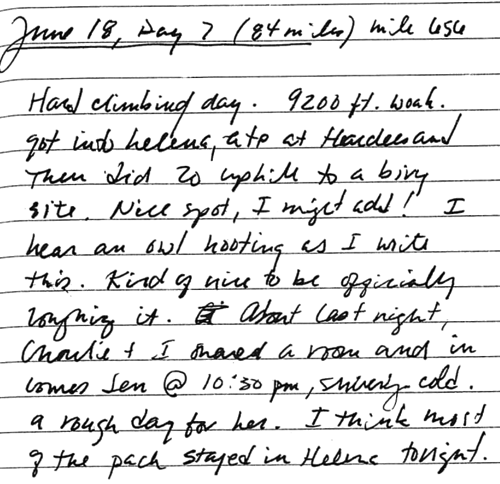 June 18, Day 7 (84 miles) mile 656
Hard climbing day. 9200 ft. woah.
got into helena, ate at Hardees and
Then did 20 uphill to a bivy
site. Nice spot, I might add! I
hear an owl hooting as I write
this. Kind of nice to be officially
roughing it. About last night,
Charlie + I shared a room and in
comes Jen @ 10:30 pm, shivering cold.
a rough day for her. I think most
of the pack stayed in Helena tonight.